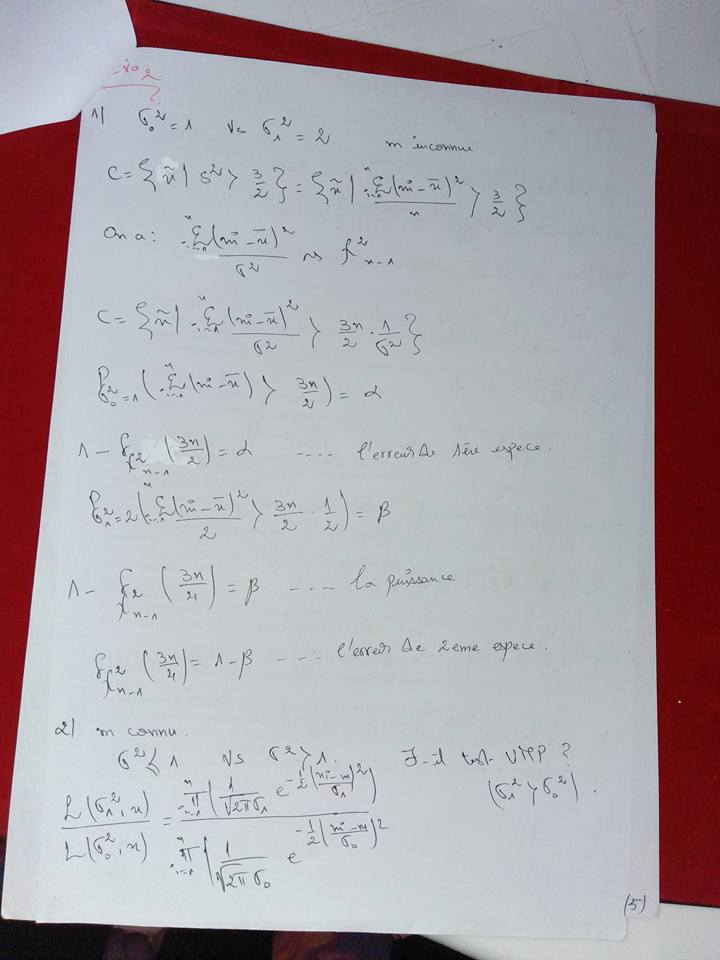 -xo 2
1) σ₀² = 1 Vs σ₁² = 2 m inconnue
C = { x̃ | S² > 3/2 } = { x̃ | Σⁿᵢ₌₁ (xi - x̄)² / n > 3/2 }
On a : Σⁿᵢ₌₁ (xi - x̄)² / σ² ~> χ²ₙ₋₁
C = { x̃ | Σⁿᵢ₌₁ (xi - x̄)² / σ² > 3n/2 · 1/σ² }
P_{σ₀²=1} ( Σⁿᵢ₌₁ (xi - x̄) > 3n/2 ) = α
1 - F_{χ²ₙ₋₁} (3n/2) = α ---- l'erreur de 1ère espece.
P_{σ₁²=2} ( Σⁿᵢ₌₁ (xi - x̄)² / 2 > 3n/2 · 1/2 ) = β
1 - F_{χ²ₙ₋₁} (3n/4) = β ---- la puissance
F_{χ²ₙ₋₁} (3n/4) = 1 - β ---- l'erreur de 2eme espece.
2) m connu.
σ² ≤ 1 Vs σ² > 1. ∃-il test UMP ?
L(σ₁², x) / L(σ₀², x) = Πⁿᵢ₌₁ ( 1/√2πσ₁ e^{-1/2 ((xi - m)/σ₁)²} ) / Πⁿᵢ₌₁ ( 1/√2πσ₀ e^{-1/2 ((xi - m)/σ₀)²} (σ₁² > σ₀²).
(5)